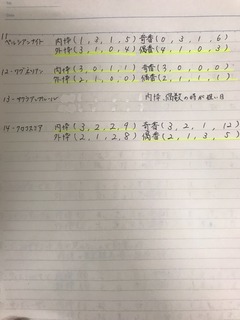 11
ペルシアンナイト 内枠(1,3,1,5) 奇番(0,3,1,6)
外枠(3,1,0,4) 偶番(4,1,0,3)
12-リブエリアン 内枠(3,0,1,1) 奇番(3,0,0,0)
外枠(2,1,0,0) 偶番(2,1,1,1)
13-サウンド
内枠、偶数の時が狙い目
14-クロコスミア 内枠(3,2,2,9) 奇番(3,2,1,12)
外枠(2,1,2,8) 偶番(2,1,3,5)